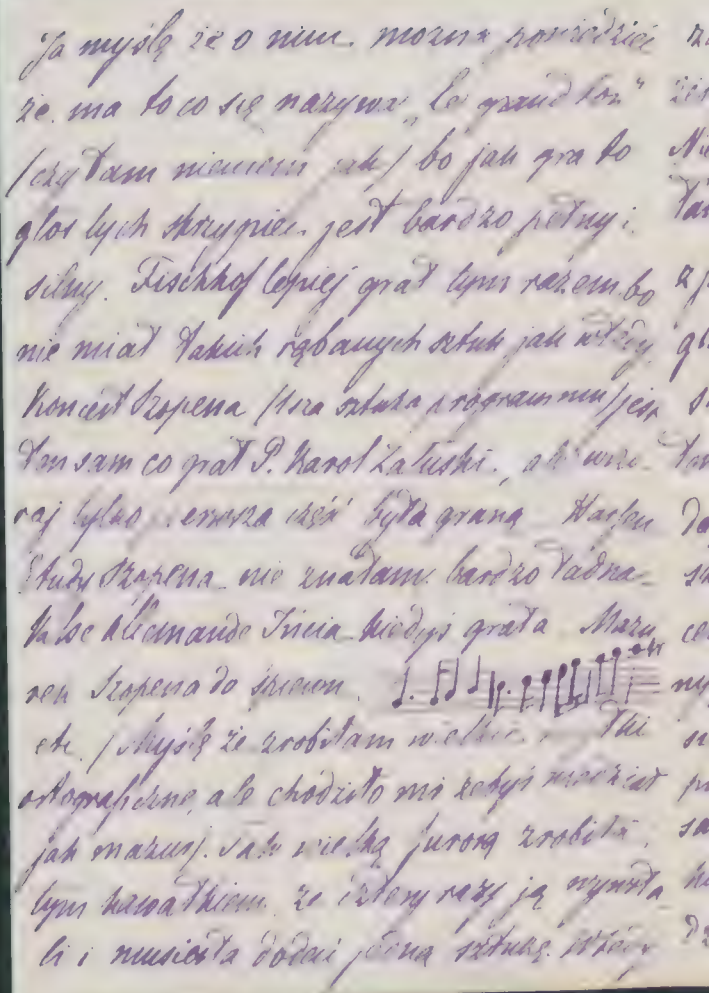 Ja myślę że o nim można powiedzieć
że ma to co się nazywa „le grand ton"
/czytam niewiem jak/ bo jak gra to
głos tych skrzypiec jest bardzo pełny i
silny. Fischhof lepiej grał tym razem bo
nie miał takich rąbanych sztuk jak wtedy
Koncert Szopena /1sza sztuka programmu/ jest
ten sam co grał P. Karol Załuski, ale wczo-
raj tylko pierwsza część była graną Harfen
Etudy Szopena nie znałam bardzo ładna
Valse Allemande Incia kiedyś grała Mazu
rek Szopena do śpiewu
etc. / Myślę że zrobiłam wielkie
ortograficzne, ale chodziło mi żebyś wiedział
jak mazurj. Tak wielką furorę zrobiła
tym kawałkiem, że cztery razy ją wywoła
li i musiała dodać jedną sztukę. Wtedy